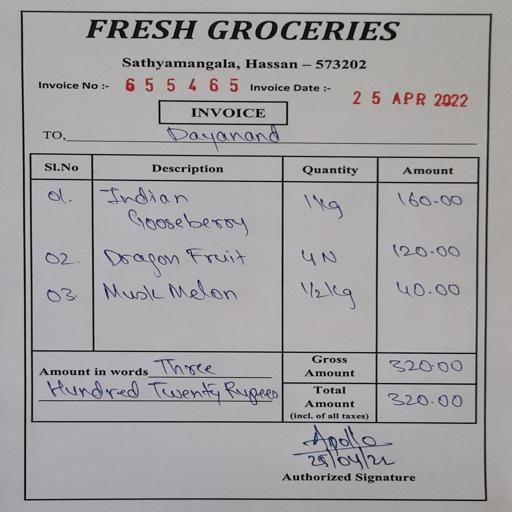 FRESH GROCERIES
Sathyamangala, Hassan – 573202
Invoice No :- 655465 Invoice Date :- 25 APR 2022
INVOICE
TO, Dayanand
Sl.No Description Quantity Amount
01. Indian Gooseberry 1kg 160.00
02. Dragon Fruit 4N 120.00
03. Musk Melon 1/2kg 40.00
Amount in words Three Hundred Twenty Rupees
Gross Amount 320.00
Total Amount (incl. of all taxes) 320.00
Apollo
25/04/22
Authorized Signature